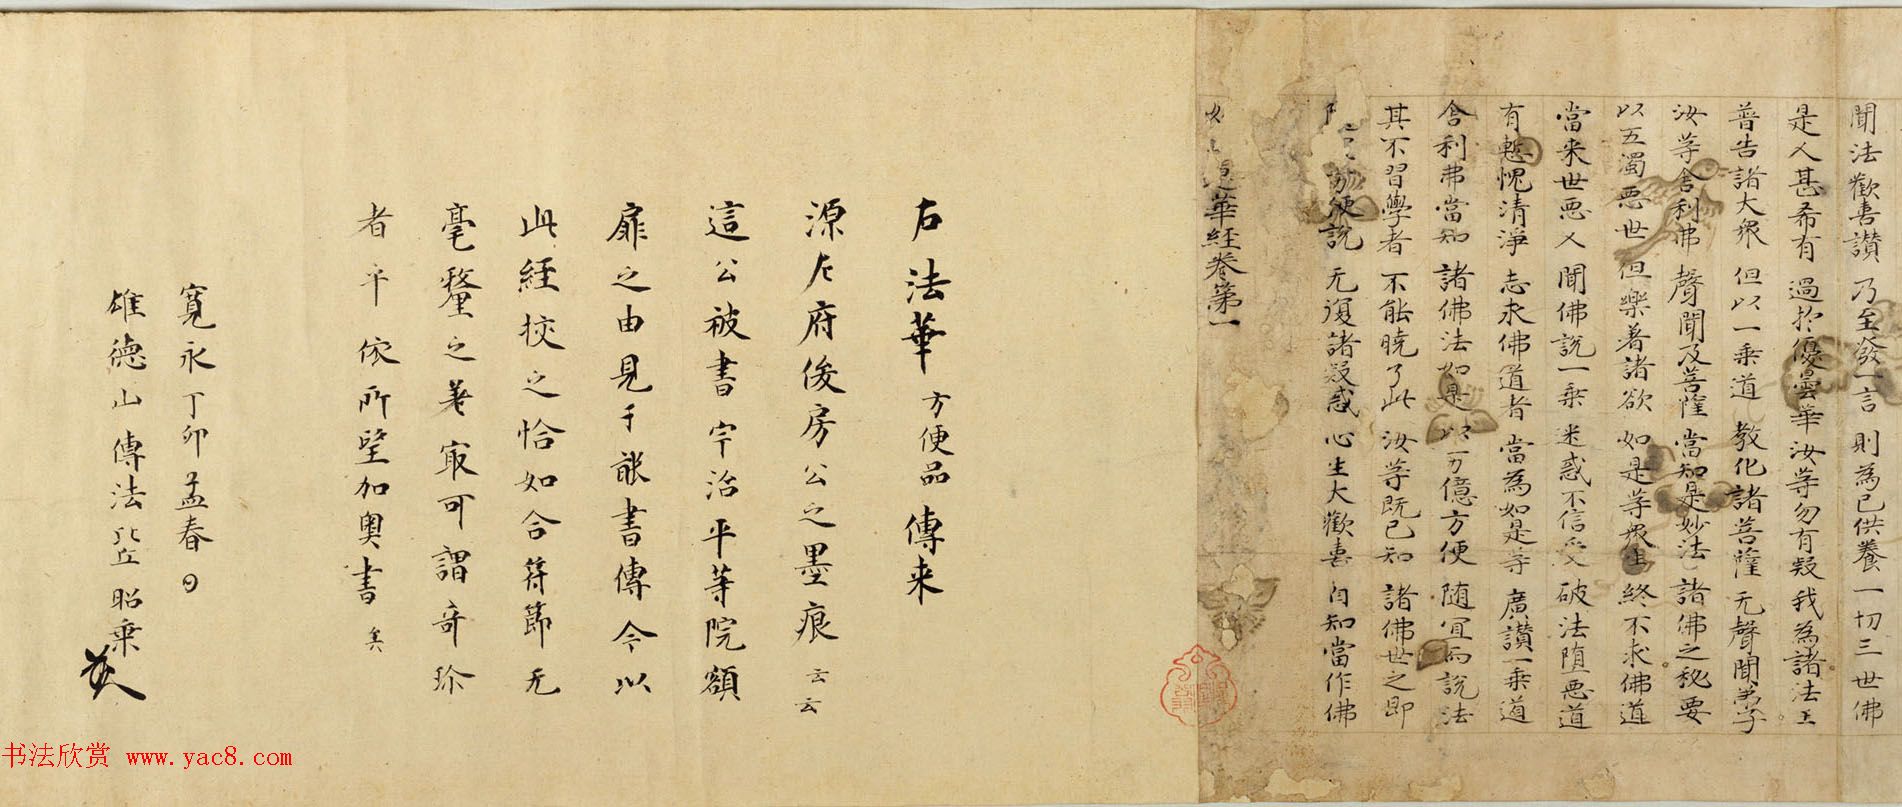 聞法歡喜讃 乃至發一言 則為已供養 一切三世佛
是人甚希有 過於優曇華 汝等勿有疑 我為諸法王
普告諸大衆 但以一乗道 教化諸菩薩 无聲聞弟子
汝等舎利弗 聲聞及菩薩 當知是妙法 諸佛之秘要
以五濁惡世 但樂著諸欲 如是等衆生 終不求佛道
當来世惡人 聞佛説一乗 迷惑不信受 破法堕惡道
有慙愧清淨 志求佛道者 當為如是等 廣讃一乗道
舎利弗當知 諸佛法如是 以万億方便 随宜而説法
其不習學者 不能曉了此 汝等既已知 諸佛世之師
便説 无復諸疑惑 心生大歡喜 自知當作佛
華経巻第一
右法華方便品傳来
源左府俊房公之墨痕云云
這公被書宇治平等院額
扉之由見于能書傳今以
此経挍之恰如合符節无
毫釐之差寂可謂奇珍
者乎依所望加奥書矣
寛永丁卯孟春日
雄徳山傳法比丘昭乗
书法欣赏 www.yac8.com